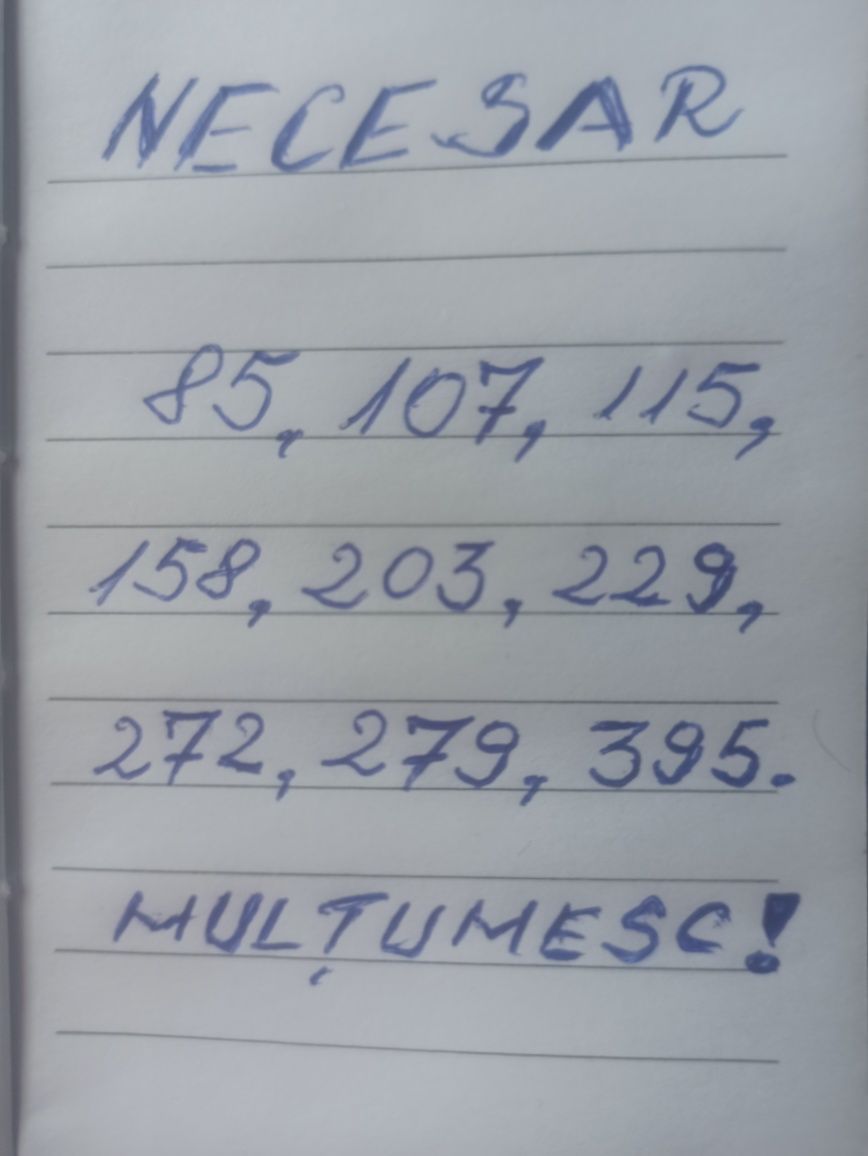 NECESAR
85, 107, 115,
158, 203, 229,
272, 279, 395.
MULȚUMESC!